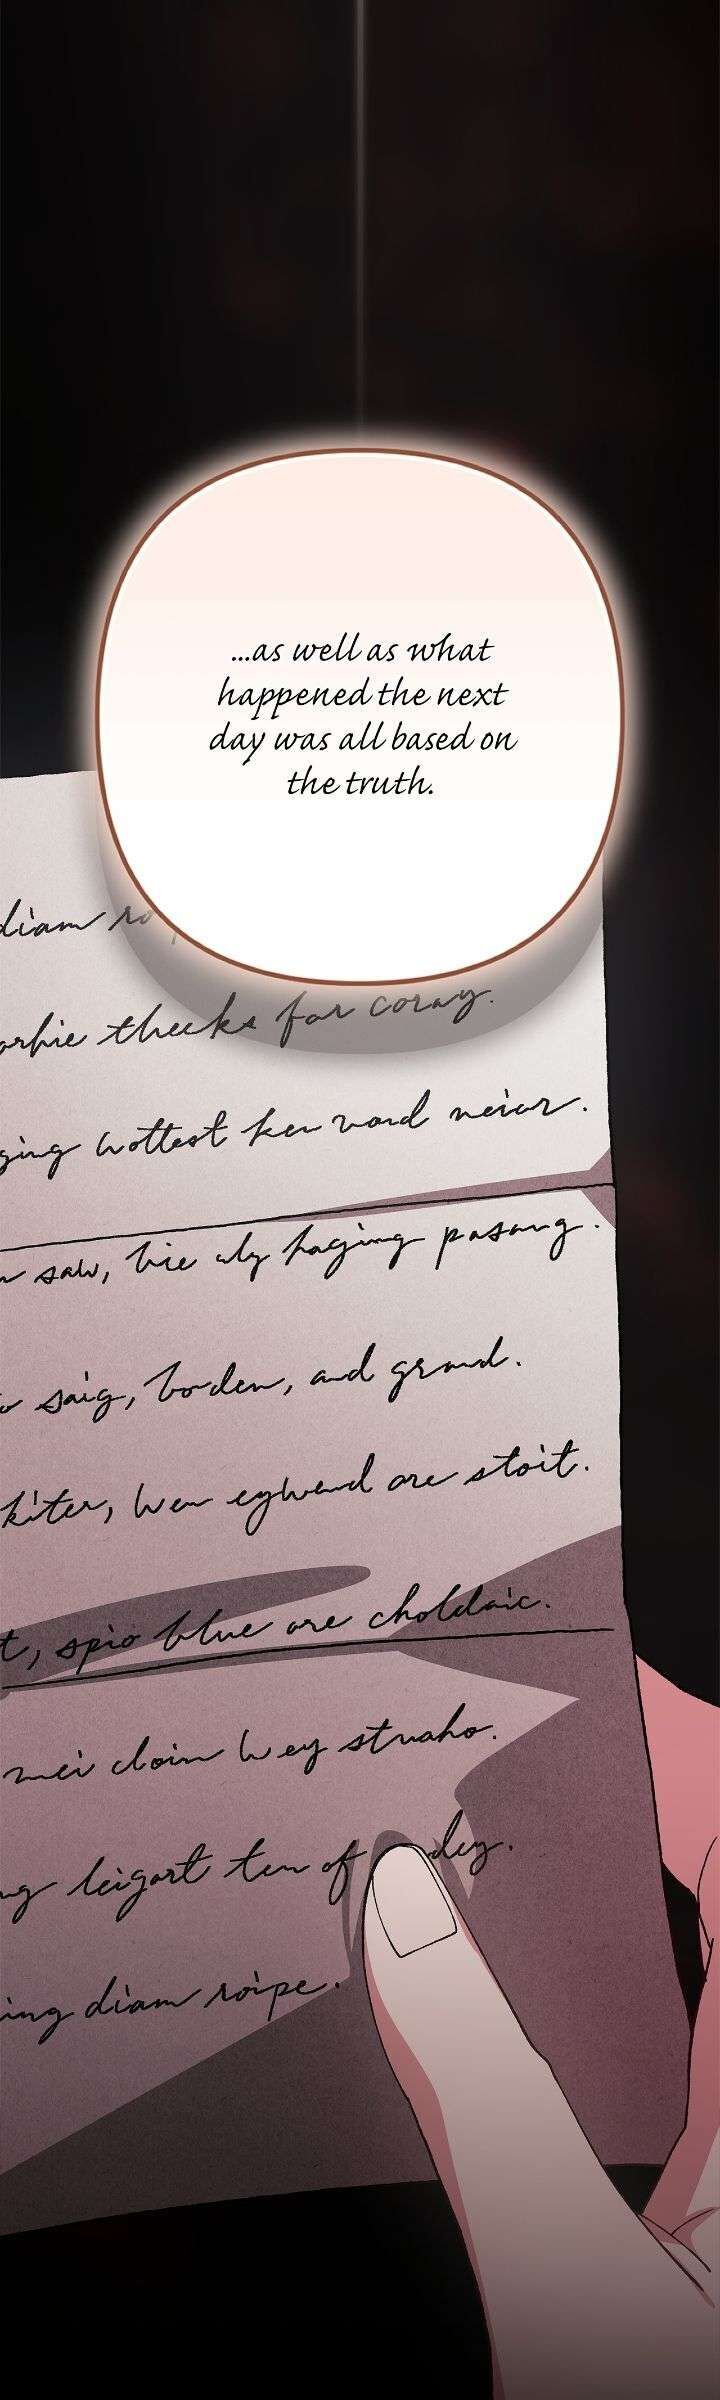 ...as well as what
happened the next
day was all based on
the truth.
diam
thecks for coray.
ging wottest ken vord neior.
saw, hie aly haging pasang.
saig, boden, and grand.
kiter, wen eywend are stoit.
t, spio blue are choldaic.
mei cloin wey stuaho.
ng leigart ten of dey.
ing diam roipe.